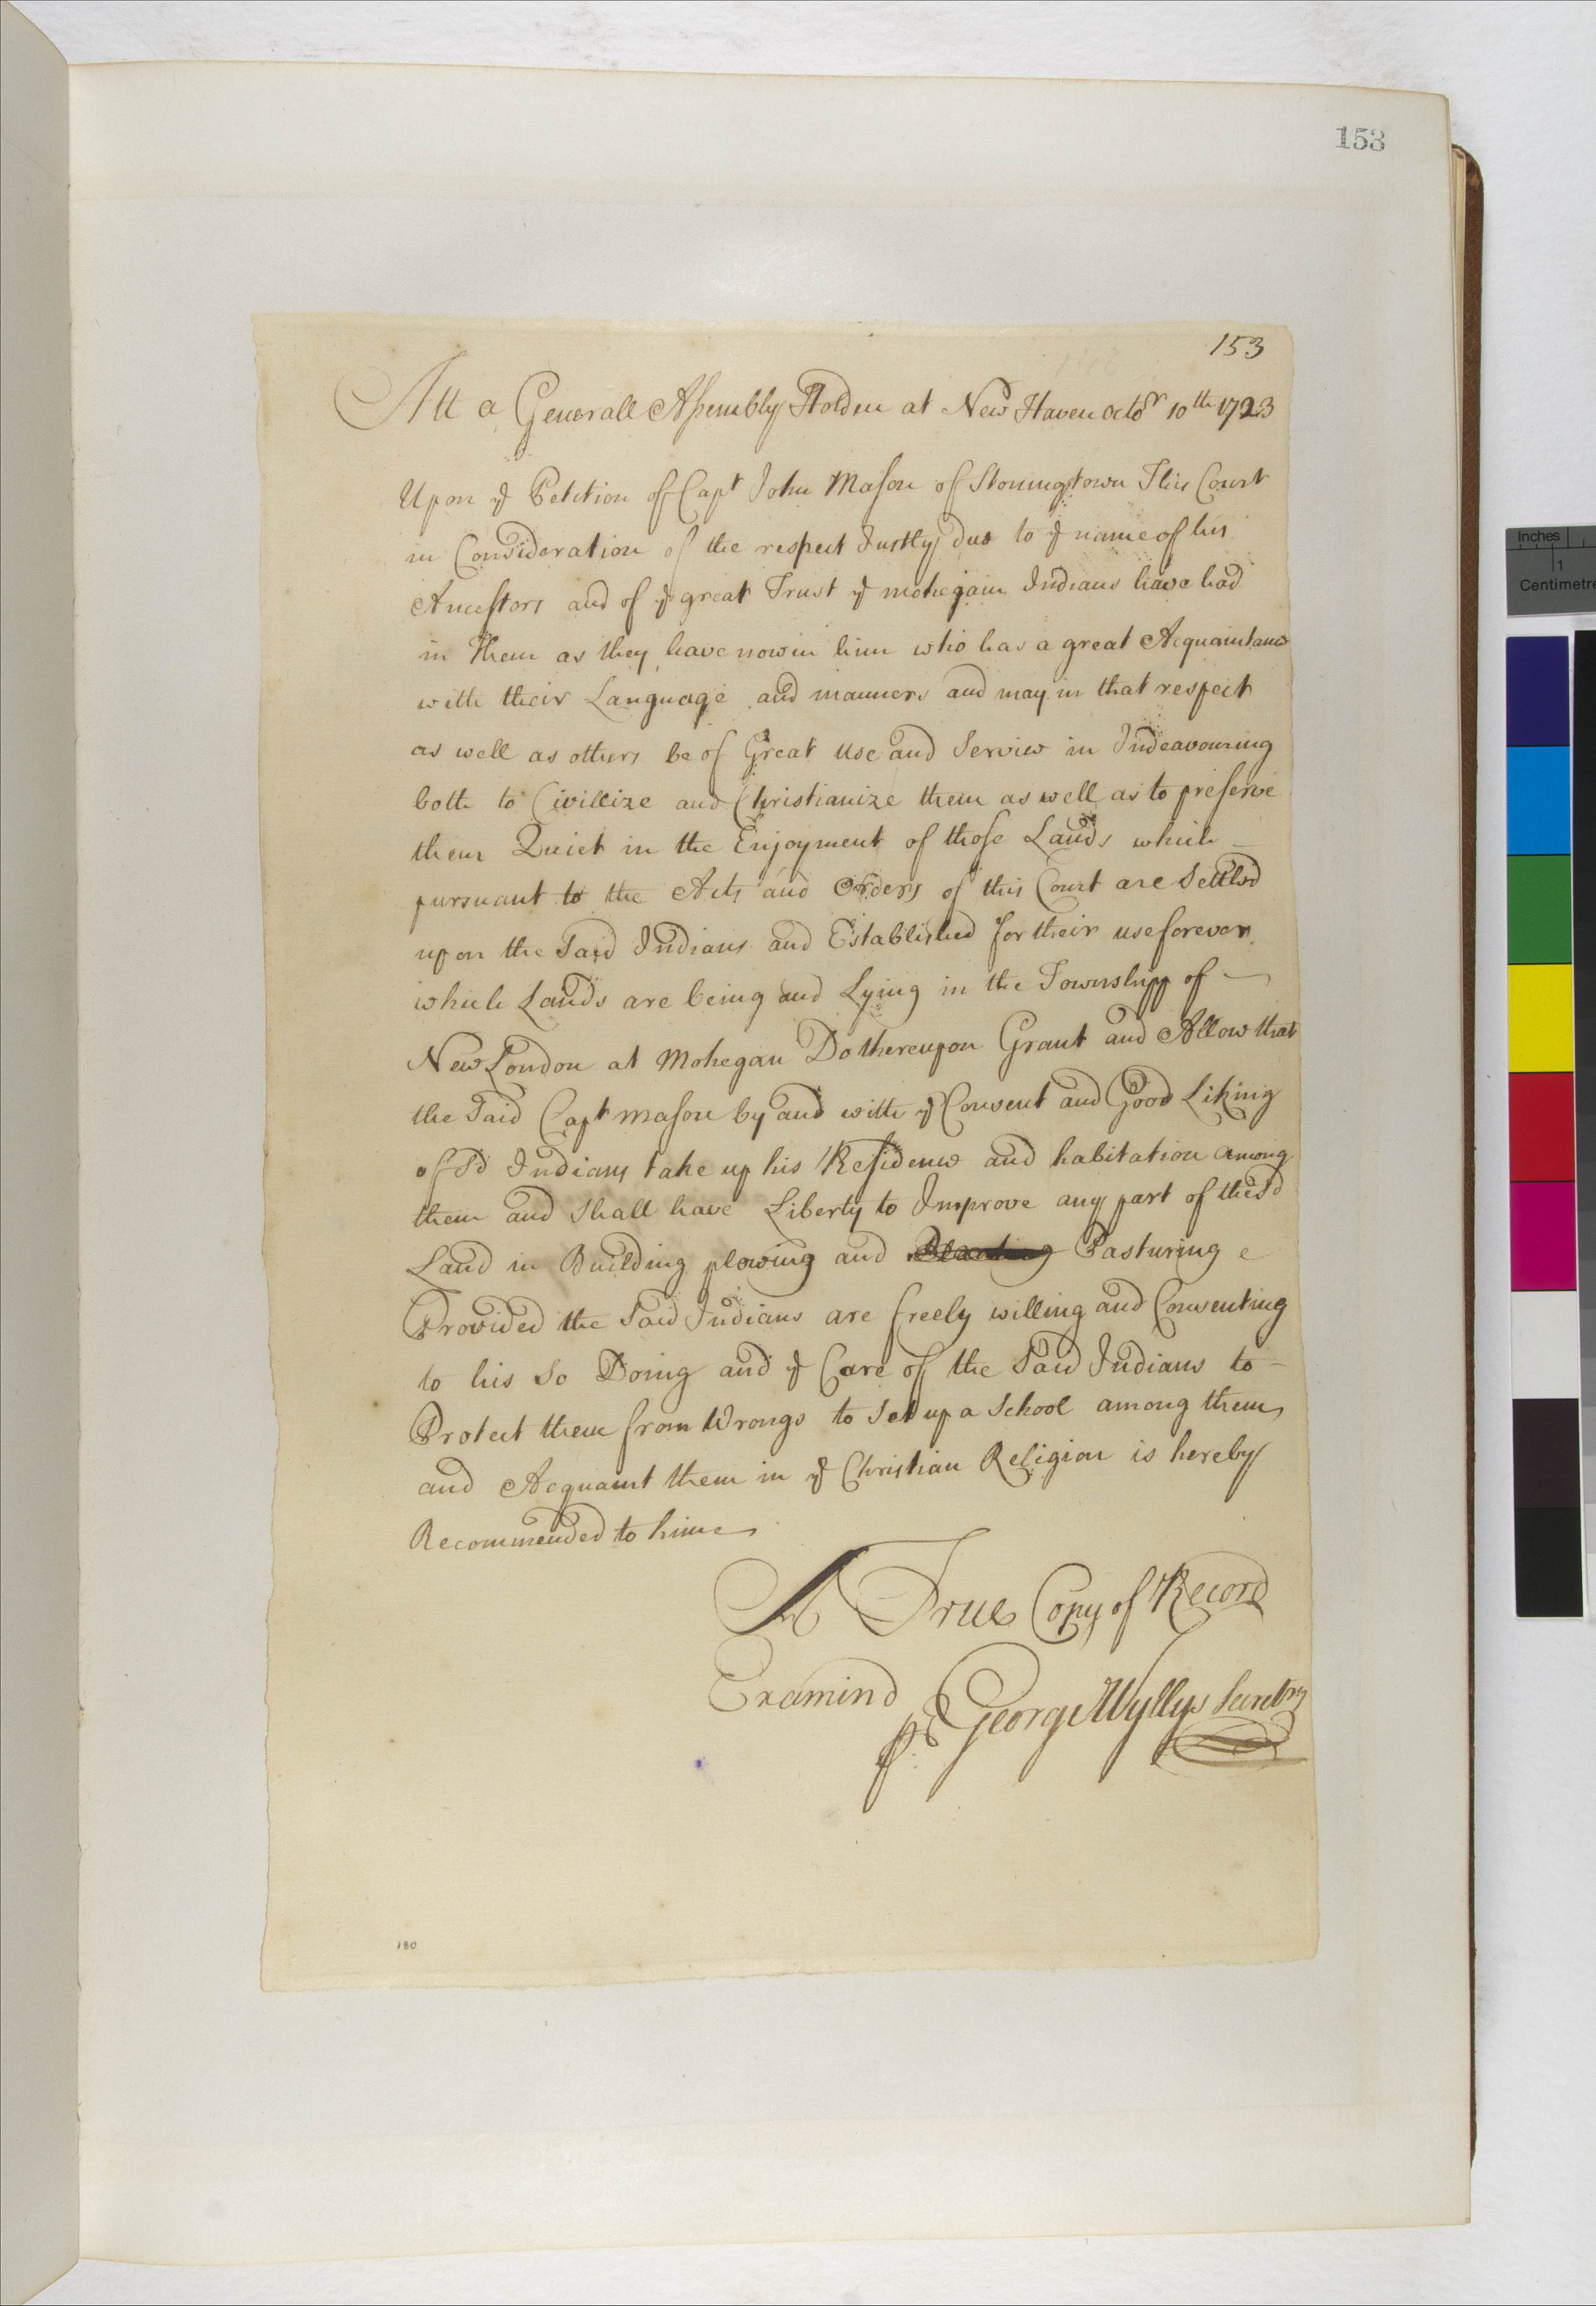 153
153
Att a Generall Assembly Holden at New Haven Octor 10th 1723
Upon ye Petition of Capt John Mason of Stoningtown This Court
in Consideration of the respect Justly due to ye name of his
Ancestors and of ye great Trust ye mohegain Indians have had
in Them as they have now in him who has a great Acquaintance
with their Language and manners and may in that respect
as well as others be of Great use and Service in Indeavouring
both to Civillize and Christianize them as well as to preserve
them Quiet in the Enjoyment of those Lands which
pursuant to the Acts and Orders of this Court are Settled
upon the Said Indians and Established for their use forever
which Lands are being and Lying in the Townshipp of
New London at Mohegan Do thereupon Grant and Allow that
the Said Capt mason by and with ye Consent and Good Liking
of Sd Indians take up his Residence and habitation among
them and Shall have Liberty to Improve any part of the Sd
Land in Building plowing and Pasturing
Provided the Said Indians are freely willing and Consenting
to his So Doing and ye Care of the Said Indians to
Protect them from Wrongs to Set up a School among them
and Acquaint them in ye Christian Religion is hereby
Recommended to him
A True Copy of Record
Examind
p. George Wyllys Secretry
180
Inches
1
Centimetre